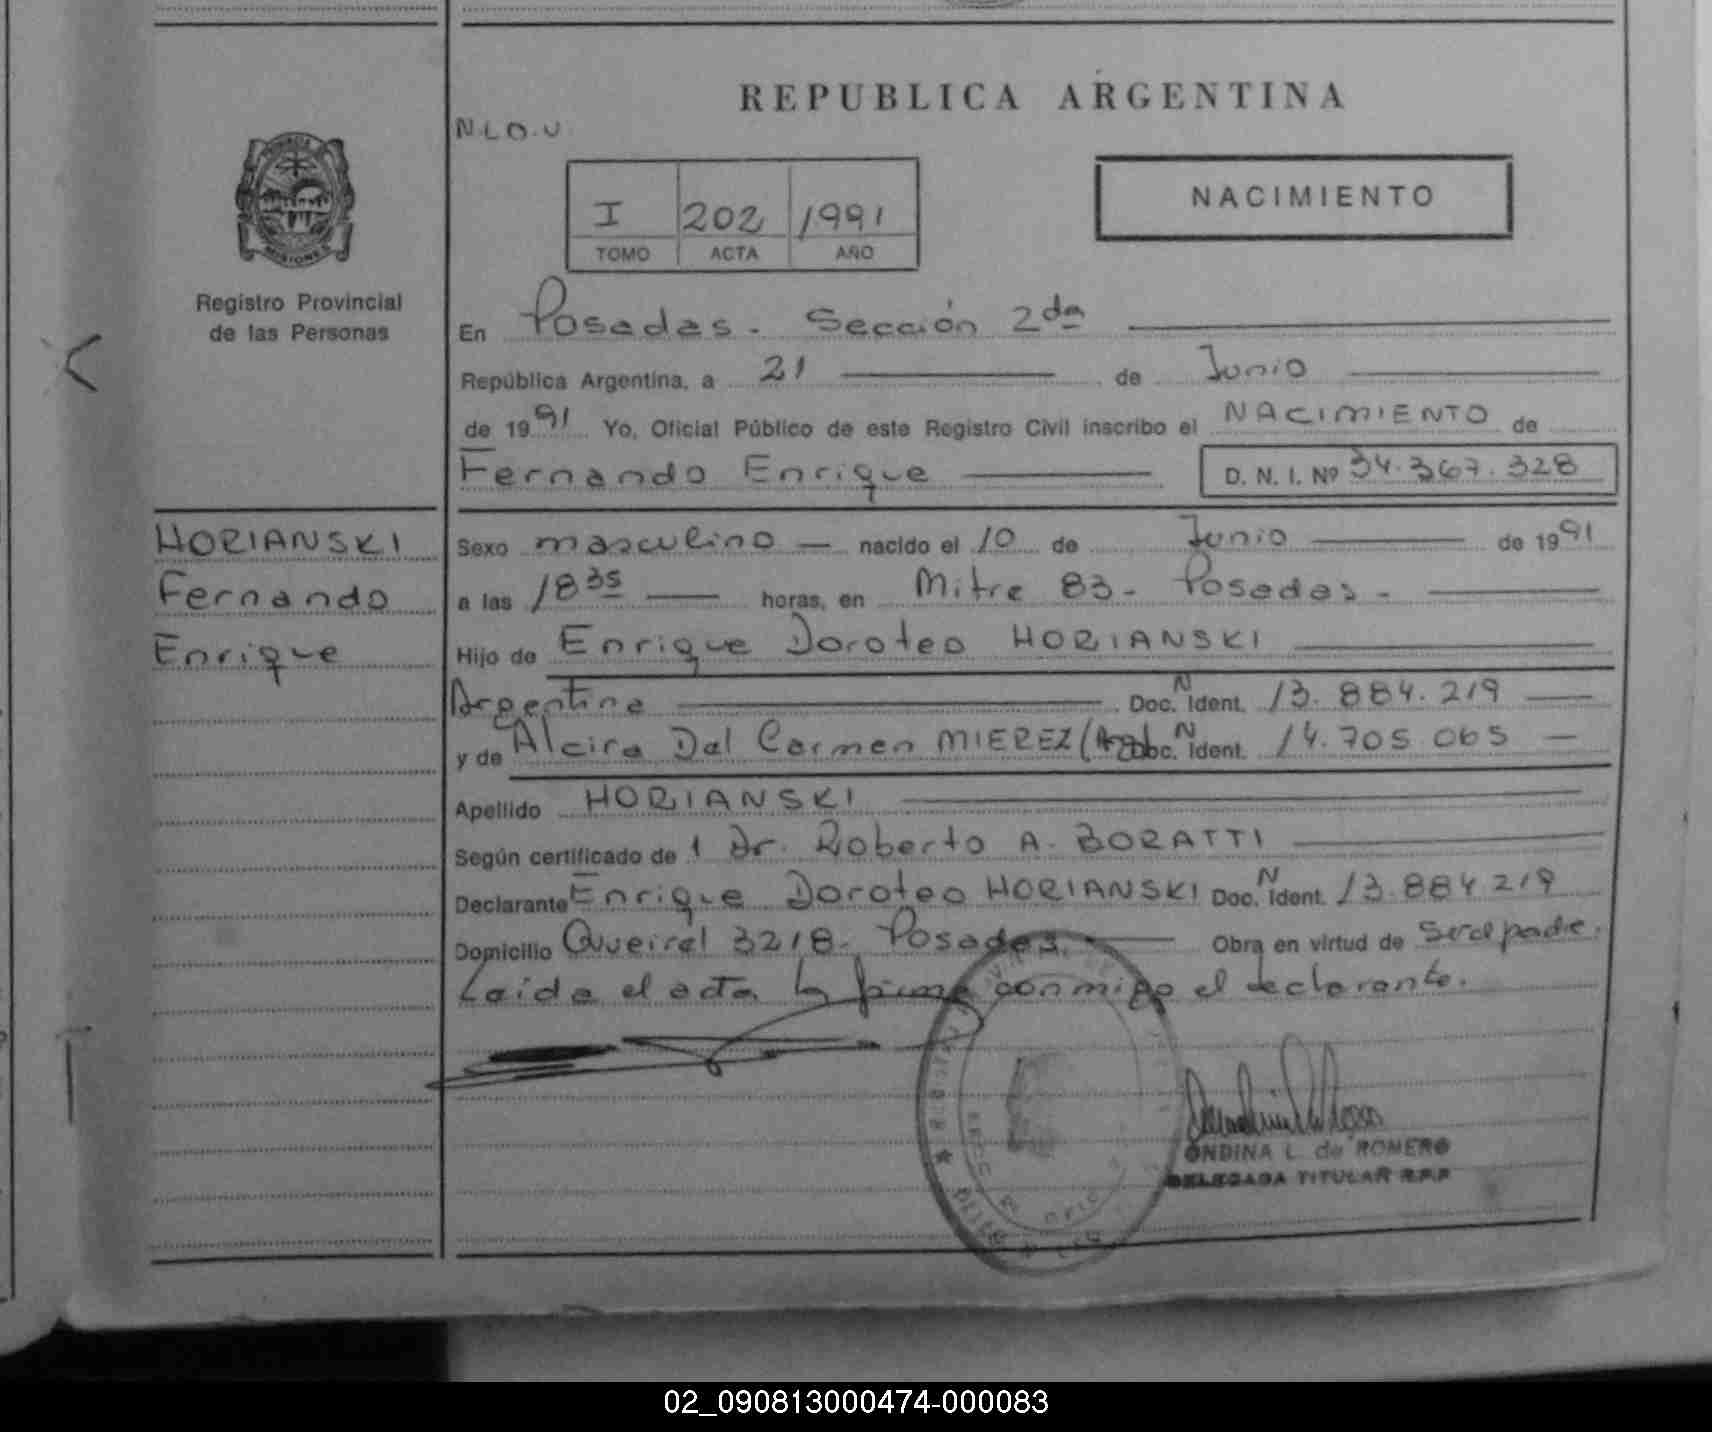 REPUBLICA ARGENTINA
N.L.O.U.
PROVINCIA
MISIONES
Registro Provincial
de las Personas
I 202 1991
TOMO ACTA AÑO
NACIMIENTO
En Posadas - Sección 2da
República Argentina, a 21 de Junio
de 1991 Yo, Oficial Público de este Registro Civil inscribo el NACIMIENTO de
Fernando Enrique D. N. I. Nº 34.367.328
HORIANSKI
Fernando
Enrique
Sexo masculino nacido el 10 de Junio de 1991
a las 18 35 horas, en Mitre 83 - Posadas -
Hijo de Enrique Doroteo HORIANSKI
Argentina Doc. N Ident. 13.884.219
y de Alcira Del Carmen MIEREZ (Arg) Doc. N Ident. 14.705.065
Apellido HORIANSKI
Según certificado de 1 Dr. Roberto A. BORATTI
Declarante Enrique Doroteo HORIANSKI Doc. N Ident. 13.884.219
Domicilio Queirel 3218 - Posadas. Obra en virtud de ser el padre.
Leida el acta la firma conmigo el declarante.
ONDINA L. de ROMERO
DELEGADA TITULAR R.P.P
02_090813000474-000083